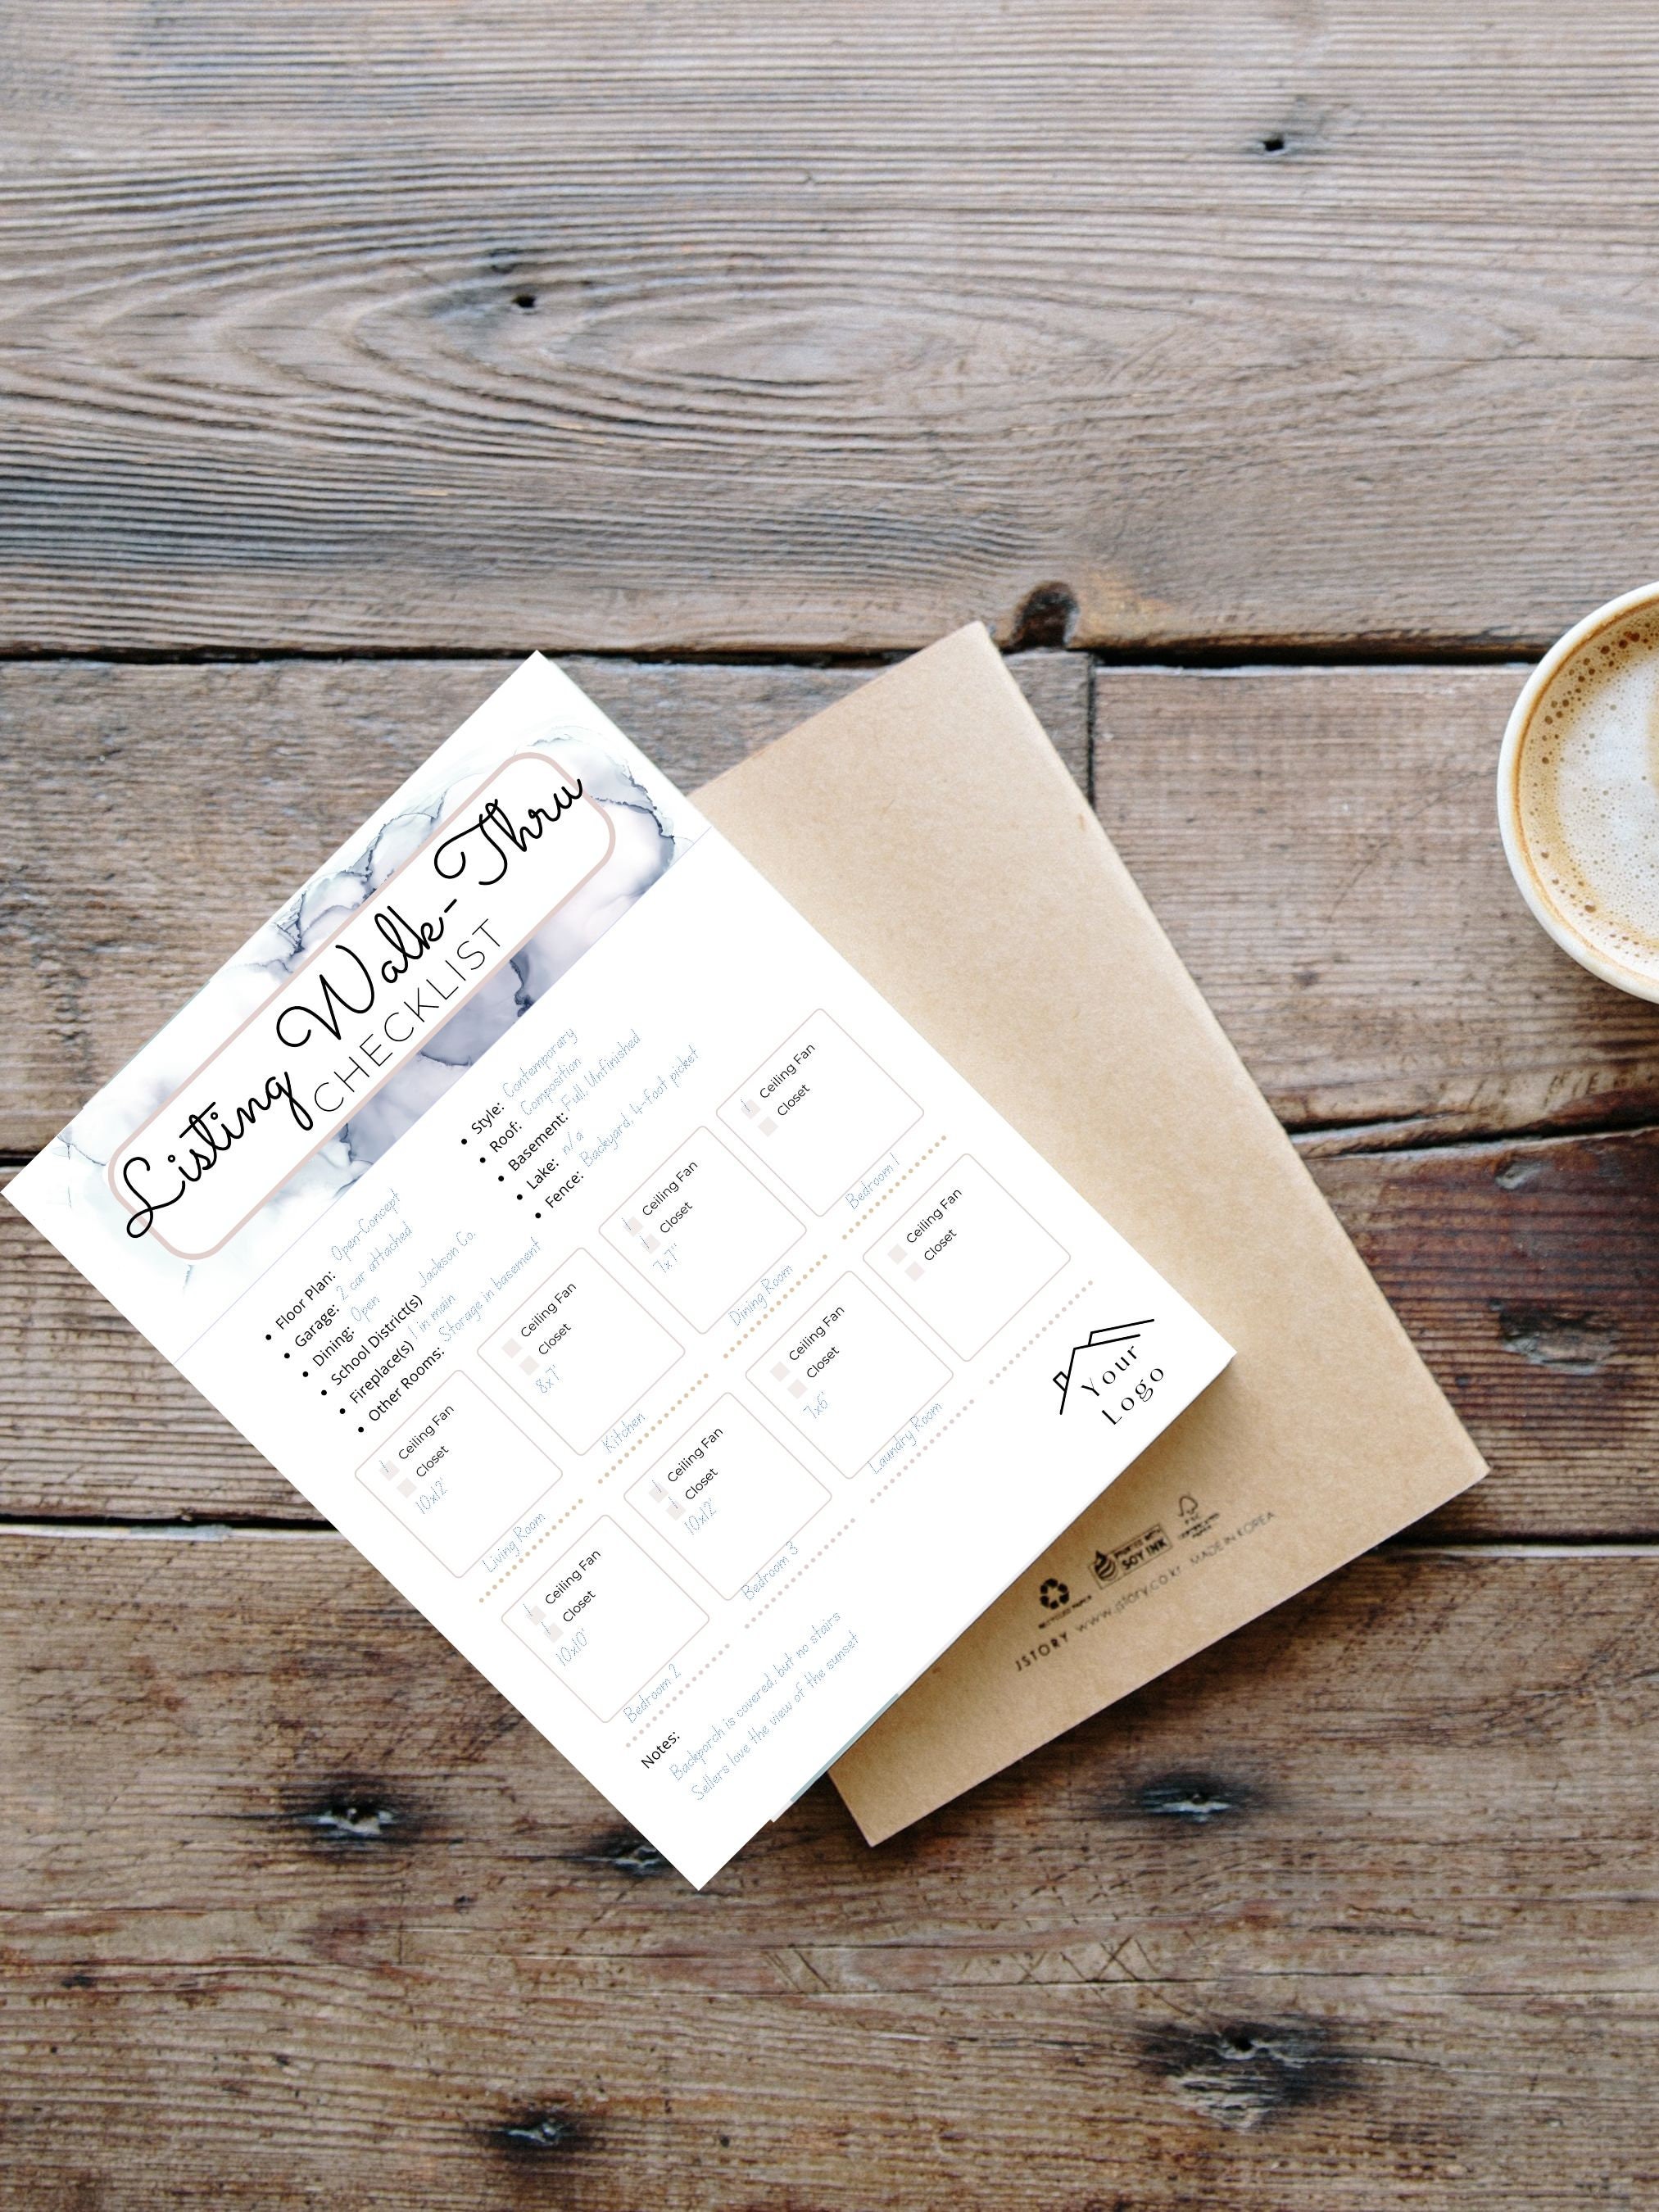 Listing Walk-Thru
CHECKLIST
• Floor Plan: Open-Concept
• Garage: 2 car attached
• Dining: Open
• School District(s) Jackson Co.
• Fireplace(s) 1 in main
• Other Rooms: Storage in basement
• Style: Contemporary
• Roof: Composition
• Basement: Full, Unfinished
• Lake: n/a
• Fence: Backyard, 4-foot picket
Ceiling Fan
Closet
10x12'
Living Room
Ceiling Fan
Closet
8x7'
Kitchen
Ceiling Fan
Closet
7x7'
Dining Room
Ceiling Fan
Closet
Bedroom 1
Ceiling Fan
Closet
10x10'
Bedroom 2
Ceiling Fan
Closet
10x12'
Bedroom 3
Ceiling Fan
Closet
7x6'
Laundry Room
Ceiling Fan
Closet
Notes:
Backporch is covered, but no stairs
Sellers love the view of the sunset
Your
Logo
RECYCLED PAPER
PRINTED WITH
SOY INK
FSC
JSTORY www.jstory.co.kr MADE IN KOREA